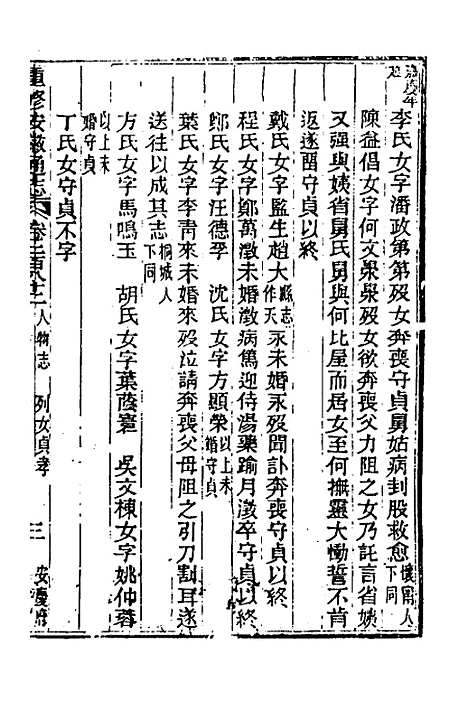 李氏女字潘政第第歿女奔喪守貞舅姑病刲股救愈懷甯人下同
陳益倡女字何文杲杲歿女欲奔喪父力阻之女乃託言省姨
又强與姨省舅氏舅與何比屋而居女至何撫靈大慟誓不肯
返遂畱守貞以終
戴氏女字監生趙大縣志作天永未婚永歿聞訃奔喪守貞以終
程氏女字鄭萬澂未婚澂病篤迎侍湯藥踰月澂卒守貞以終
鄭氏女字汪德季 沈氏女字方顯榮以上未婚守貞
葉氏女字李靑來未婚來歿泣請奔喪父母阻之引刀割耳遂
送往以成其志桐城人下同
方氏女字馬鳴玉 胡氏女字葉蔭寰 吳文棟女字姚仲蓉
以上未婚守貞
丁氏女守貞不字
重修安徽通志 人物志 列女貞孝 三 安慶府